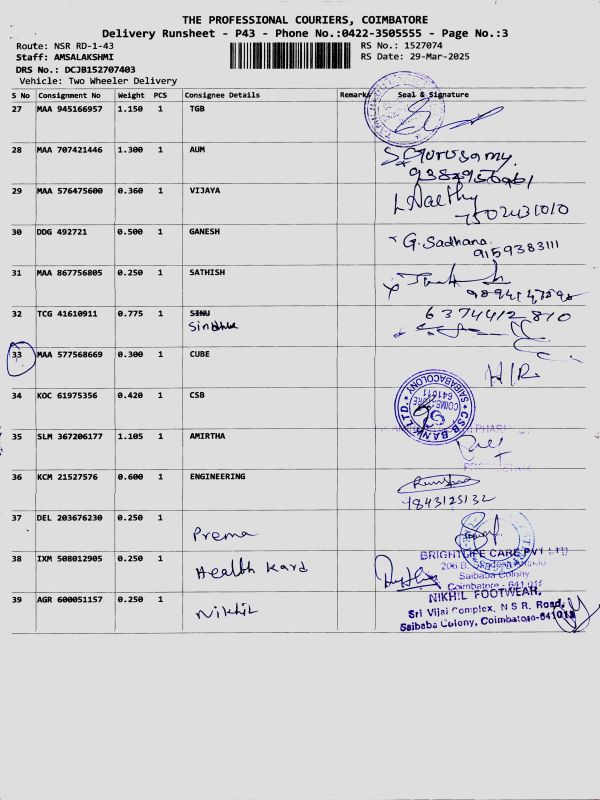 THE PROFESSIONAL COURIERS, COIMBATORE
Delivery Runsheet - P43 - Phone No.:0422-3505555 - Page No.:3
Route: NSR RD-1-43
RS No.: 1527074
Staff: AMSALAKSHMI
RS Date: 29-Mar-2025
DRS No.: DCJB152707403
Vehicle: Two Wheeler Delivery
S No Consignment No Weight PCS Consignee Details Remarks Seal & Signature
27 MAA 945166957 1.150 1 TGB
28 MAA 707421446 1.300 1 AUM
S. Gurusamy
29 MAA 576475600 0.360 1 VIJAYA
7502431010
30 DDG 492721 0.500 1 GANESH
G. Sadhana
9159383111
31 MAA 867756805 0.250 1 SATHISH
32 TCG 41610911 0.775 1 SINU
6374412810
33 MAA 577568669 0.300 1 CUBE
H/R
34 KOC 61975356 0.420 1 CSB
CSB BANK LTD.
SAIBABACOLONY
COIMBATORE
641011
35 SLM 367206177 1.105 1 AMIRTHA
36 KCM 21527576 0.600 1 ENGINEERING
9843125132
37 DEL 203676230 0.250 1
Prema
38 IXM 508012905 0.250 1
Health Kard
BRIGHT LIFE CARE PVT LTD
Saibaba Colony
Coimbatore - 641 011
39 AGR 600051157 0.250 1
Nikhil
NIKHIL FOOTWEAR,
Sri Vijai Complex, N S R. Road,
Saibaba Colony, Coimbatore-641011